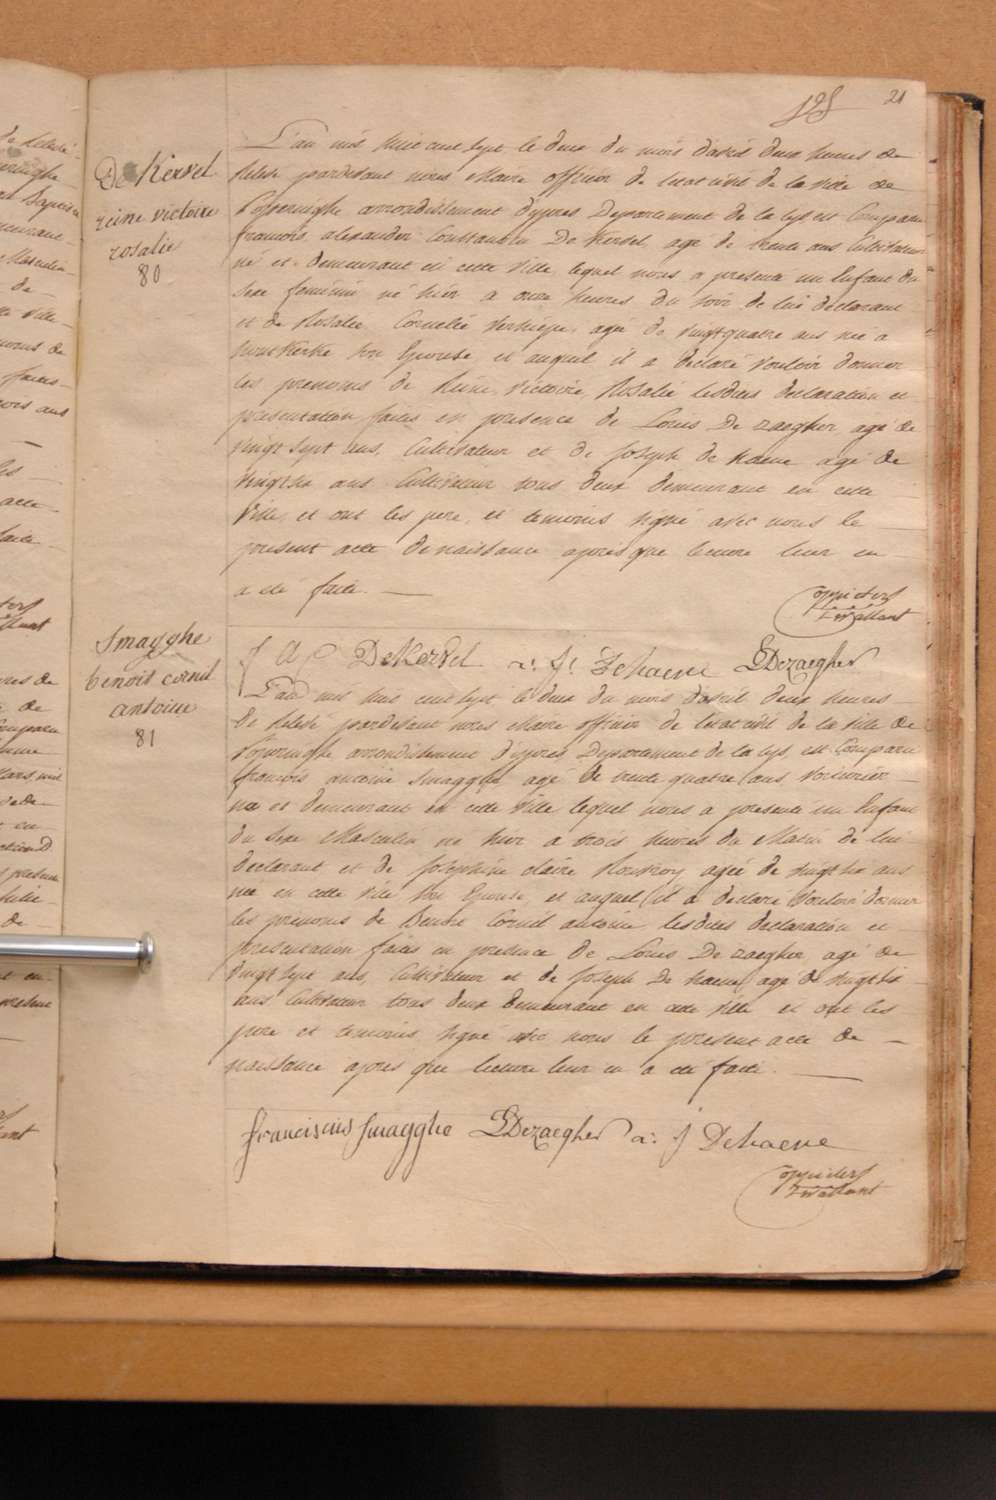 21
De Kersel
reine victoire
rosalie
80
L'an mil huit cent sept le deux du mois d'avril deux heures de
relevé pardevant nous Maire officier de l'etat civil de la ville de
Poperinghe arrondissement d'ypres Departement de la lys est Comparu
francois alexander Constantin De Kersel agé de trente ans Cultivateur
né et demeurant en cette ville lequel nous a presenté un Enfant du
sexe feminin né hier a onze heures du soir de lui declarant
et de Rosalie Cornelie agée de vingt quatre ans née a
son Epouse, et auquel il a declaré vouloir donner
les prenoms de Reine, Victoire, Rosalie lesdites declaration et
presentation faites en presence de Louis De zaegher agé de
vingt sept ans, Cultivateur et de Joseph de haene agé de
vingt six ans Cultivateur tous deux demeurant en cette
ville, et ont les pere et temoins signé avec nous le
present acte de naissance apres que lecture leur en
a été faite.
f A C DeKersel a: J: Dehaene LDezaegher
Smagghe
benoit cornil
antoine
81
L'an mil huit cent sept le deux du mois d'avril deux heures
de relevé pardevant nous Maire officier de l'etat civil de la ville de
Poperinghe arrondissement d'ypres Departement de la lys, est Comparu
francois antoine Smagghe agé de trente quatre ans Voiturier
né et demeurant en cette ville lequel nous a presenté un Enfant
du sexe Masculin né hier a trois heures du Matin de lui
declarant et de Josephine claire agée de vingt six ans
née en cette ville son Epouse, et auquel il a declaré vouloir donner
les prenoms de Benoit Cornil antoine lesdites declaration et
presentation faites en presence de Louis De zaegher agé de
vingt sept ans, Cultivateur et de Joseph De haene agé de vingt six
ans Cultivateur tous deux demeurant en cette ville et ont les
pere et temoins signé avec nous le present acte de
naissance apres que lecture leur en a été faite.
franciscus Smagghe LDezaegher a: J Dehaene